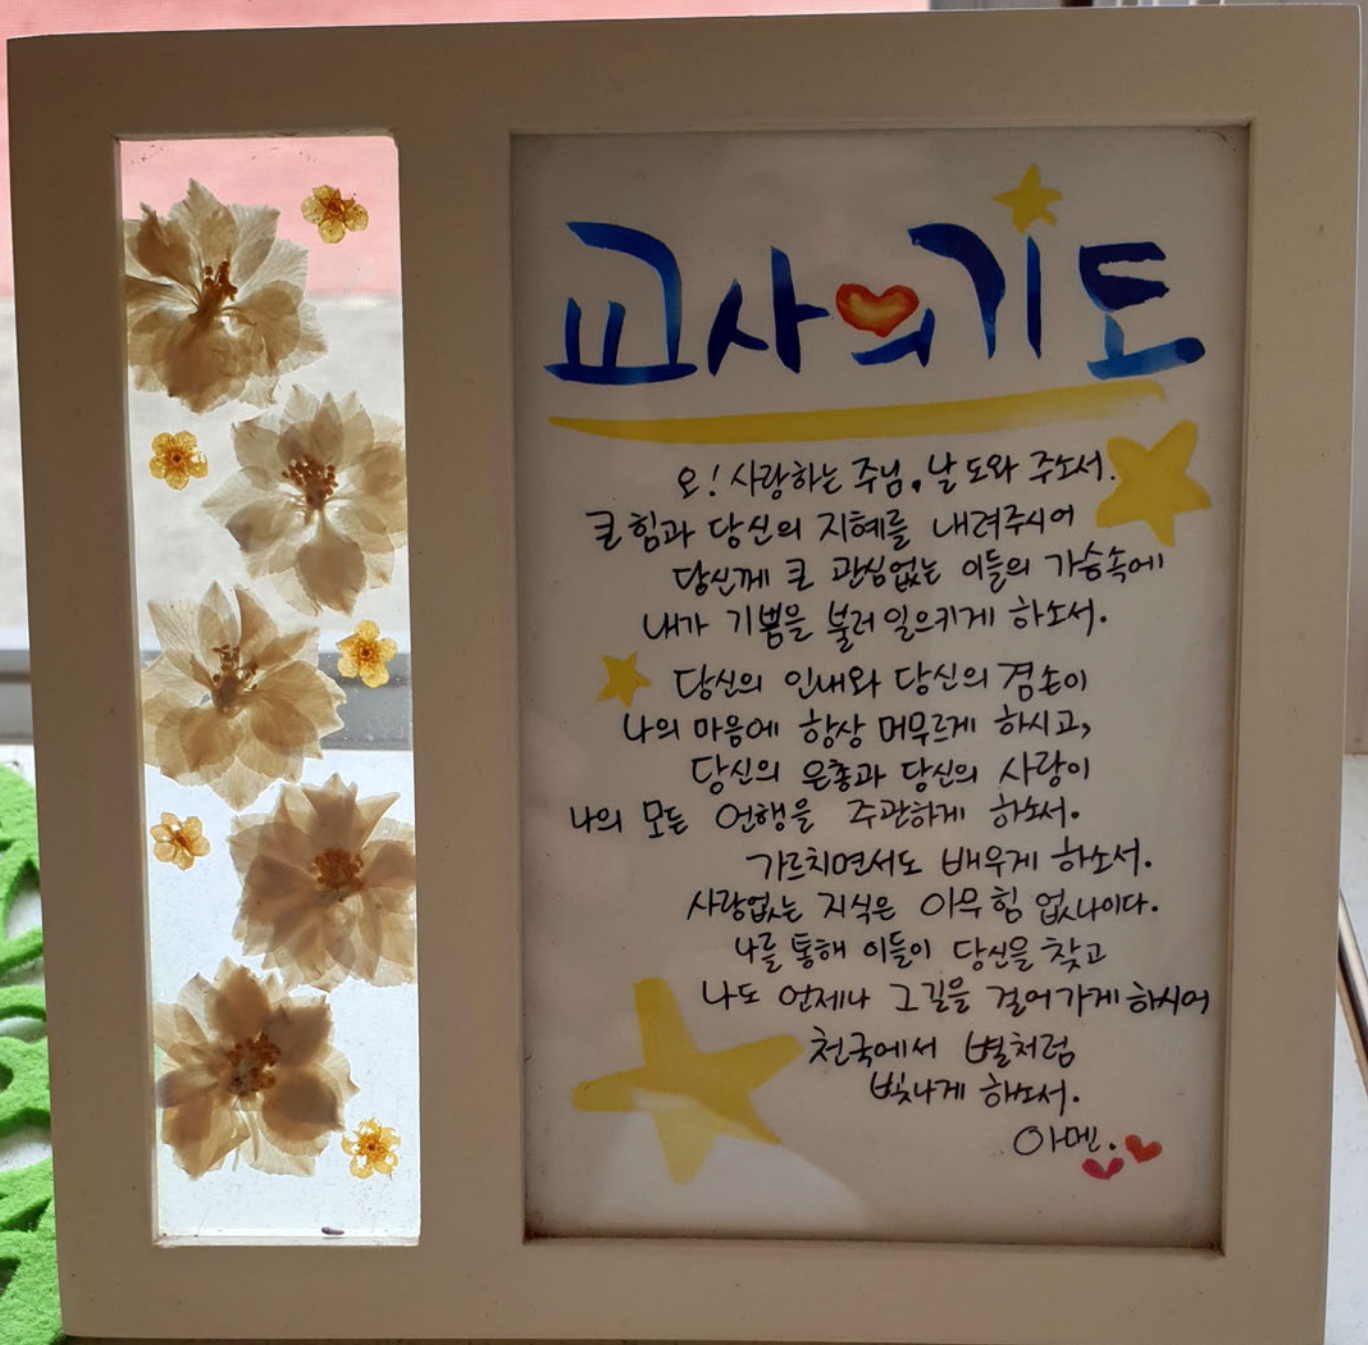 교사의 기도
오! 사랑하는 주님, 날 도와 주소서.
큰 힘과 당신의 지혜를 내려주시어
당신께 큰 관심없는 이들의 가슴속에
내가 기쁨을 불러 일으키게 하소서.
당신의 인내와 당신의 겸손이
나의 마음에 항상 머무르게 하시고,
당신의 은총과 당신의 사랑이
나의 모든 언행을 주관하게 하소서.
가르치면서도 배우게 하소서.
사랑없는 지식은 아무 힘 없나이다.
나를 통해 이들이 당신을 찾고
나도 언제나 그 길을 걸어가게 하시어
천국에서 별처럼
빛나게 하소서.
아멘.